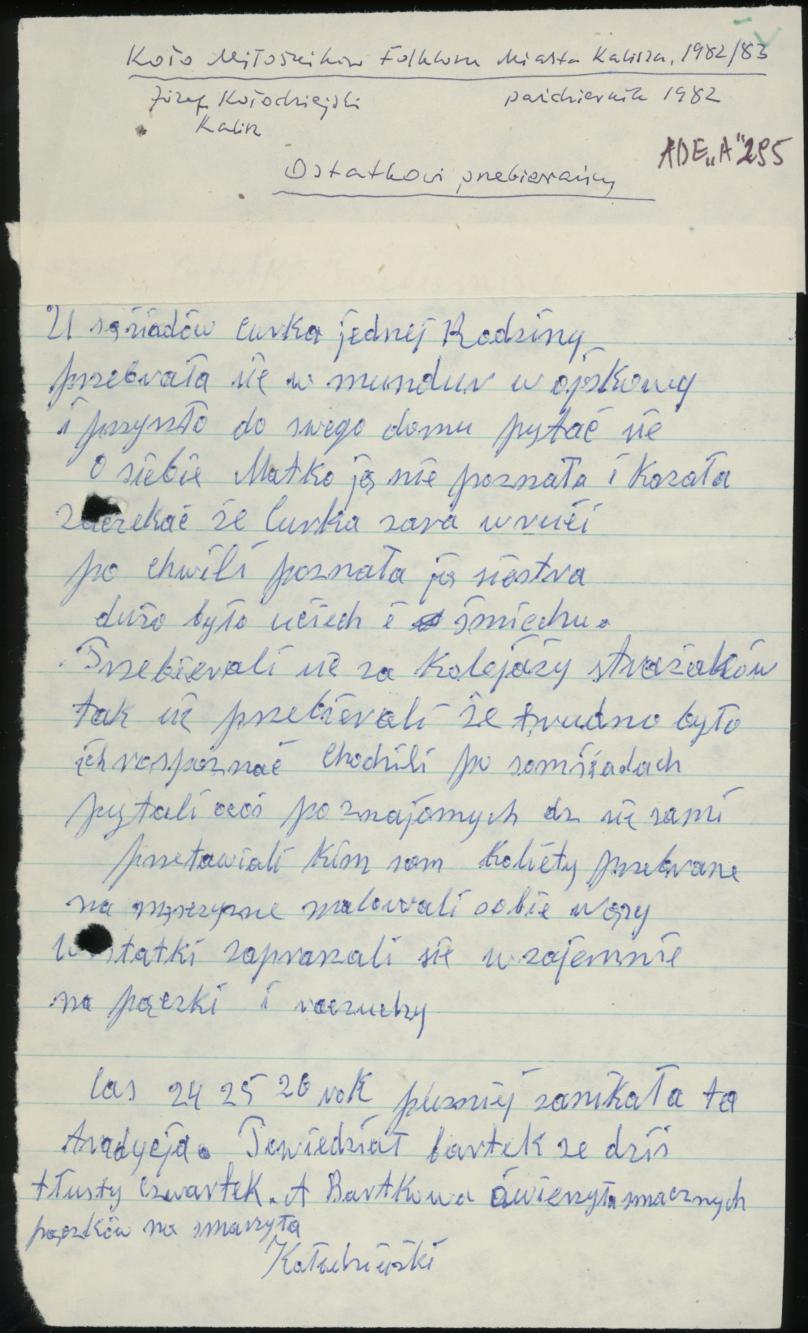 Koło Miłośników Folkloru Miasta Kalisza, 1982/83
Józef Kołodziejski październik 1982
Kalisz
ADE „A" 295
Ostatkowi przebierańcy
U sąsiadów curka jednej Rodziny
przebrała się w mundur wojskowy
i przyszło do swego domu pytać sie
o siebie Matko ją nie poznała i Kazała
zaczekać że Curka zara wruci
po chwili poznała ją siostra
dużo było uciech i śmiechu.
Przebierali sie za Kolejaży strażaków
tak sie przebierali że trudno było
ich rospoznać Chodzili po somsiadach
pytali po znajomych sie sami
przetawiali kim som Kobiety przebrane
na męszczyzne malowali sobie wąsy
W ostatki zapraszali sie w zajemnie
na pączki i raczuchy
las 24 25 26 roK puzniej zanikała ta
tradycja. Powiedział bartek ze dziś
tłusty Czwartek. A Bartkowa smacznych
pączków na smarzyła
Kołodziejski